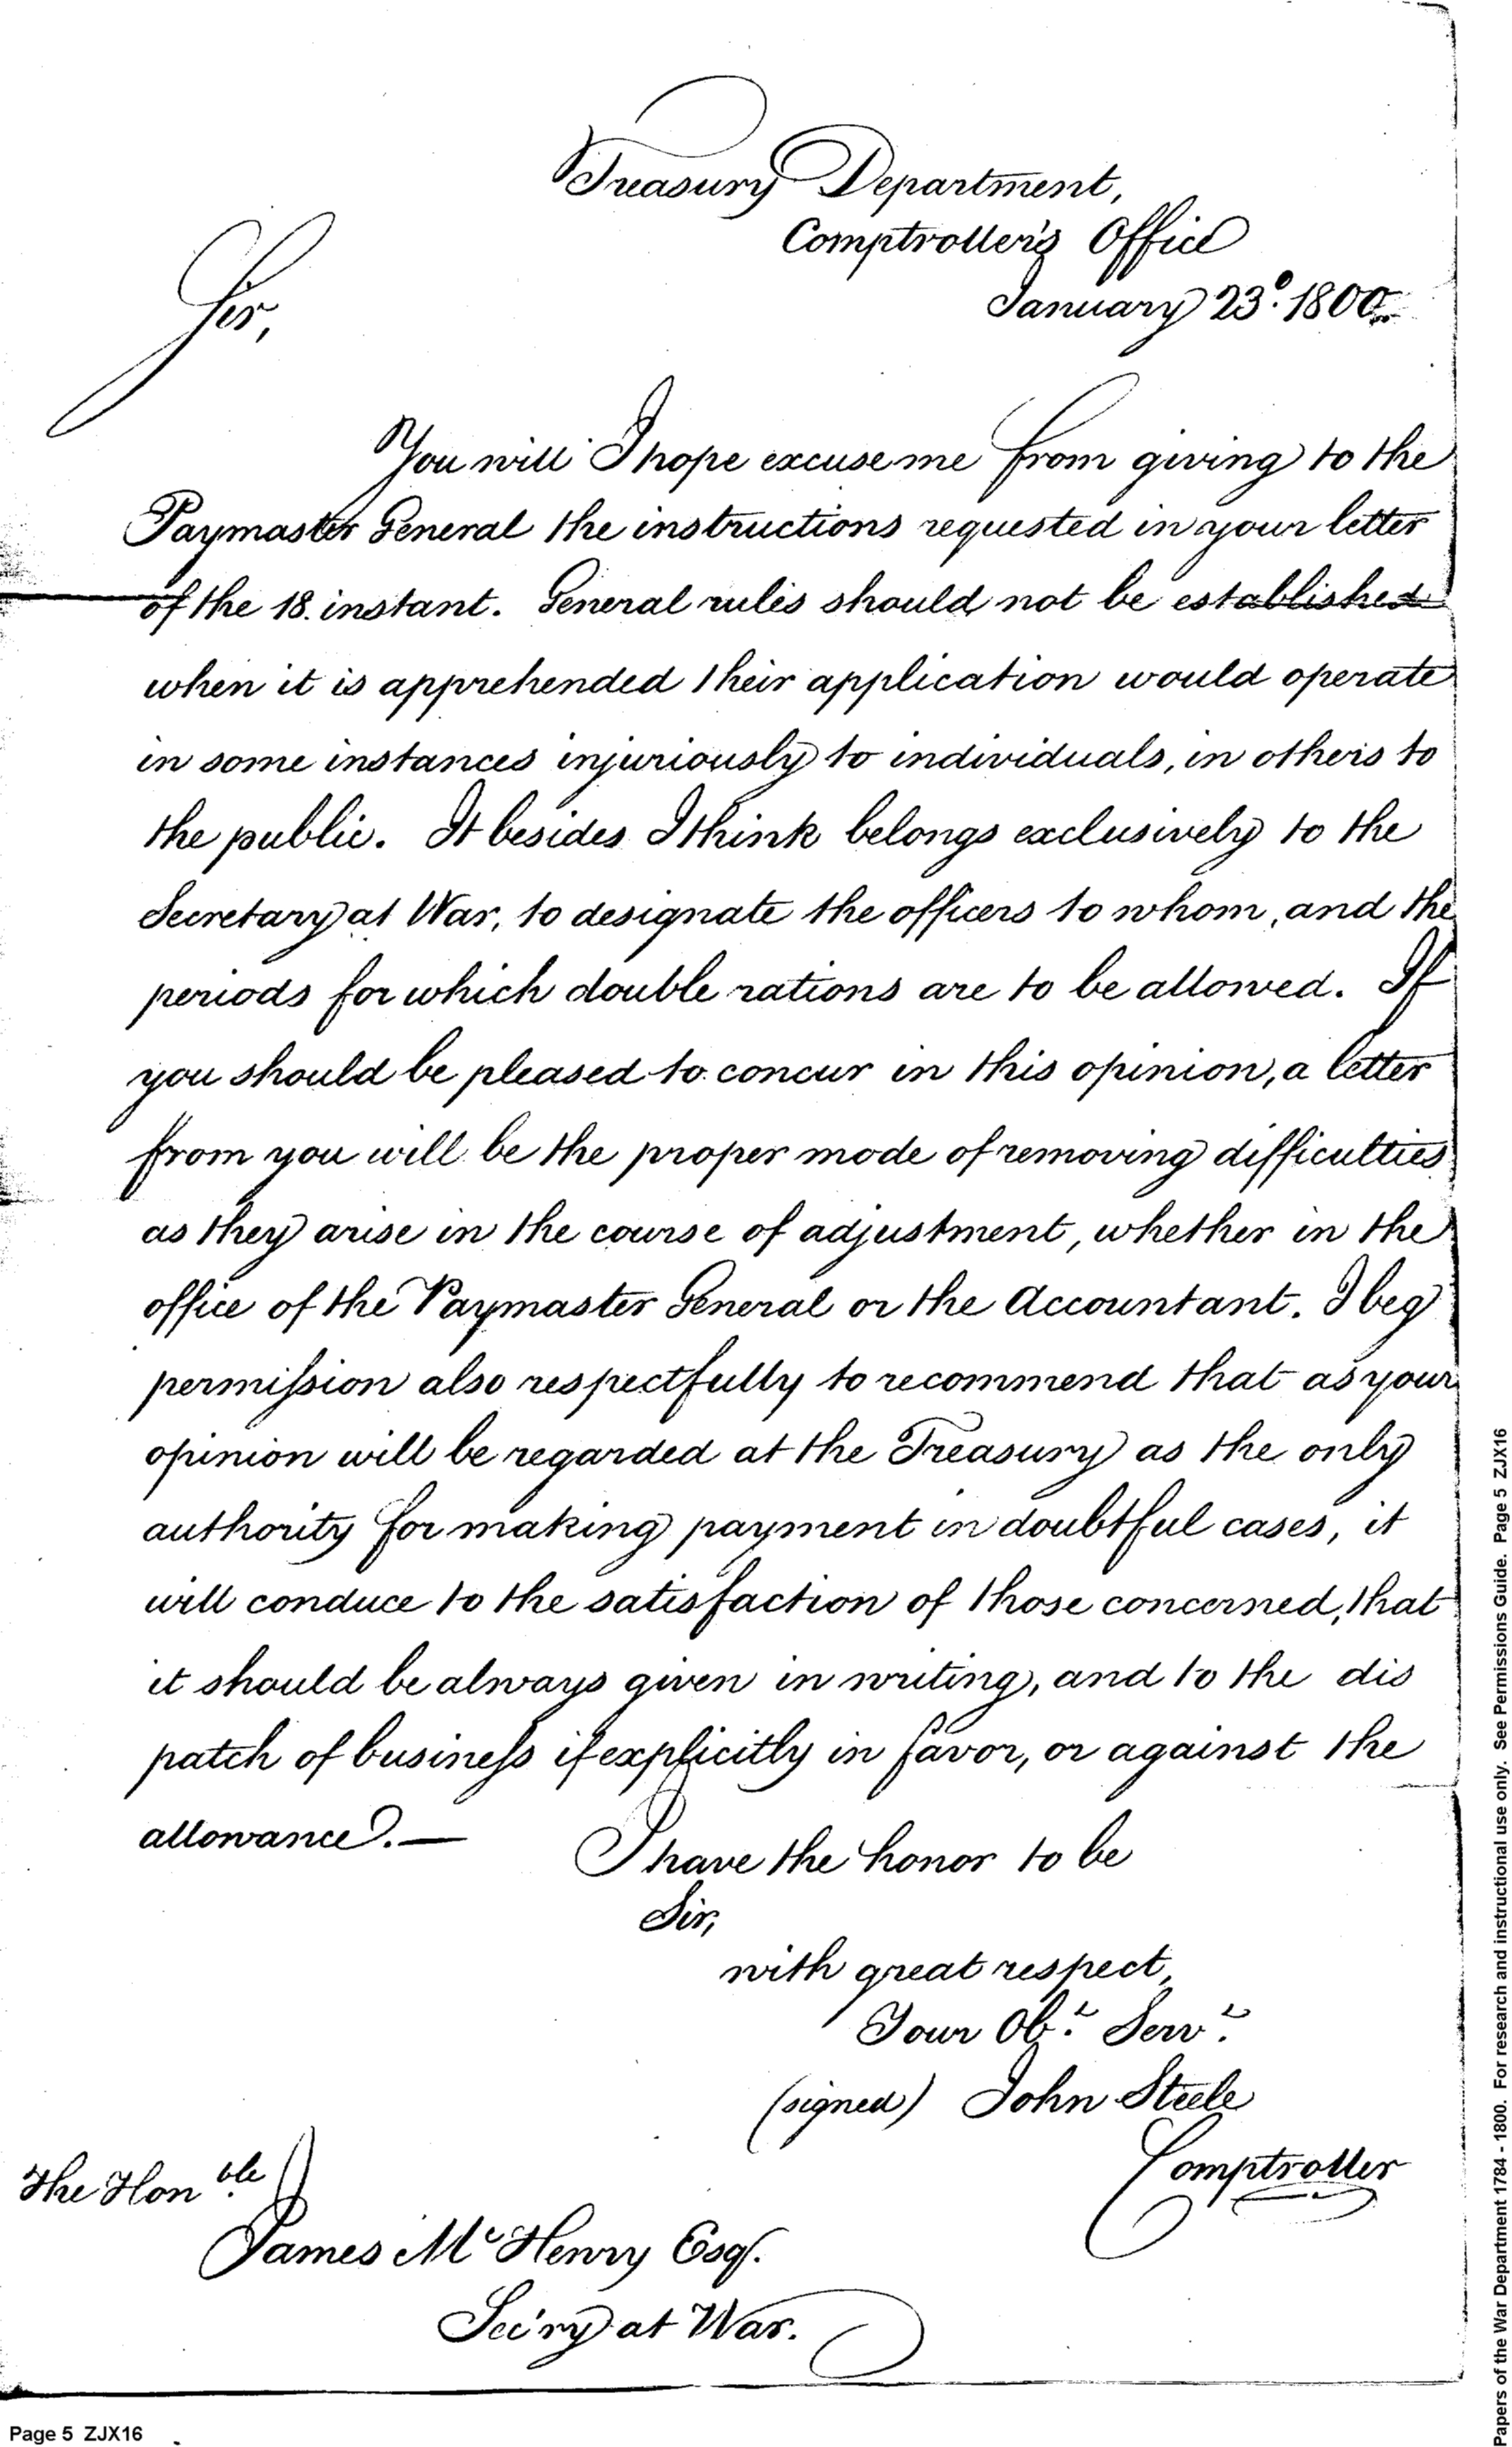 Treasury Department,
Comptroller's Office
January 23d. 1800.
Sir,
You will I hope excuse me from giving to the
Paymaster General the instructions requested in your letter
of the 18. instant. General rules should not be established
when it is apprehended their application would operate
in some instances injuriously to individuals, in others to
the public. It besides I think belongs exclusively to the
Secretary at War, to designate the officers to whom, and the
periods for which double rations are to be allowed. If
you should be pleased to concur in this opinion, a letter
from you will be the proper mode of removing difficulties
as they arise in the course of adjustment, whether in the
office of the Paymaster General or the Accountant. I beg
permission also respectfully to recommend that as your
opinion will be regarded at the Treasury as the only
authority for making payment in doubtful cases, it
will conduce to the satisfaction of those concerned, that
it should be always given in writing, and to the dis
patch of business if explicitly in favor, or against the
allowance.—
I have the honor to be
Sir,
with great respect,
Your Obt. Servt.
(signed) John Steele
Comptroller
The Honble.
James McHenry Esqr.
Sec'ry at War.
Page 5 ZJX16
Papers of the War Department 1784 - 1800. For research and instructional use only. See Permissions Guide. Page 5 ZJX16